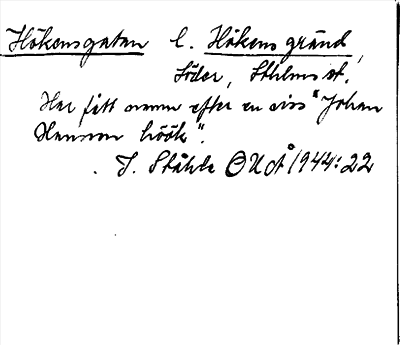 Hökensgatan l. Hökens gränd,
Söder, Sthlms st.
Har fått namn efter en viss "Johan
Hansson höök".
J. Ståhle OUÅ 1944:22